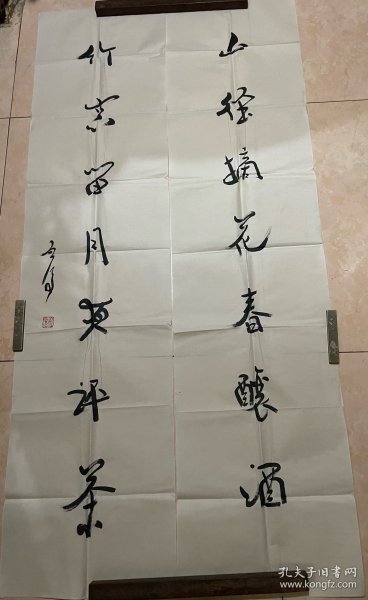 山径摘花春酿酒
竹窗留月夜评茶
孔夫子旧书网
www.kongfz.com